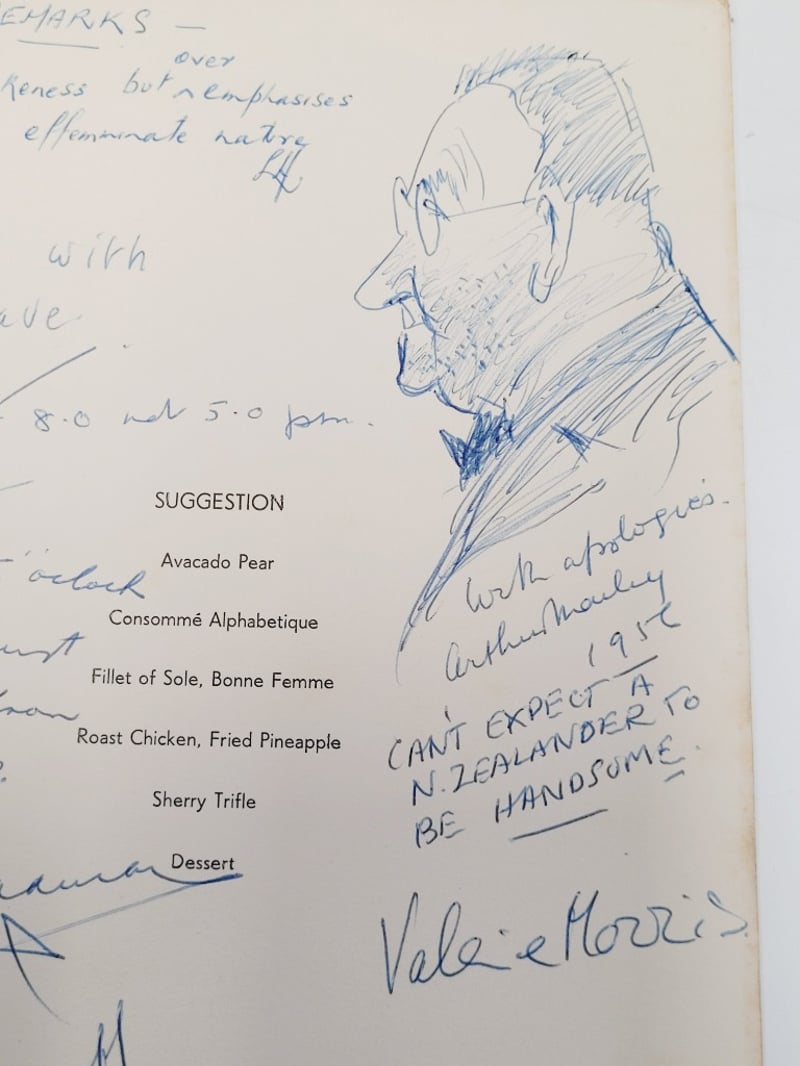 EMARKS —
over
keness but ^ emphasises
effemminate nature
with
ave
8.0 not 5.0 pm.
SUGGESTION
Avacado Pear
o'clock
Consommé Alphabetique
Fillet of Sole, Bonne Femme
Roast Chicken, Fried Pineapple
Sherry Trifle
Dessert
With apologies.
Arthur
195
CAN'T EXPECT A
N. ZEALANDER TO
BE HANDSOME.
Valerie Morris